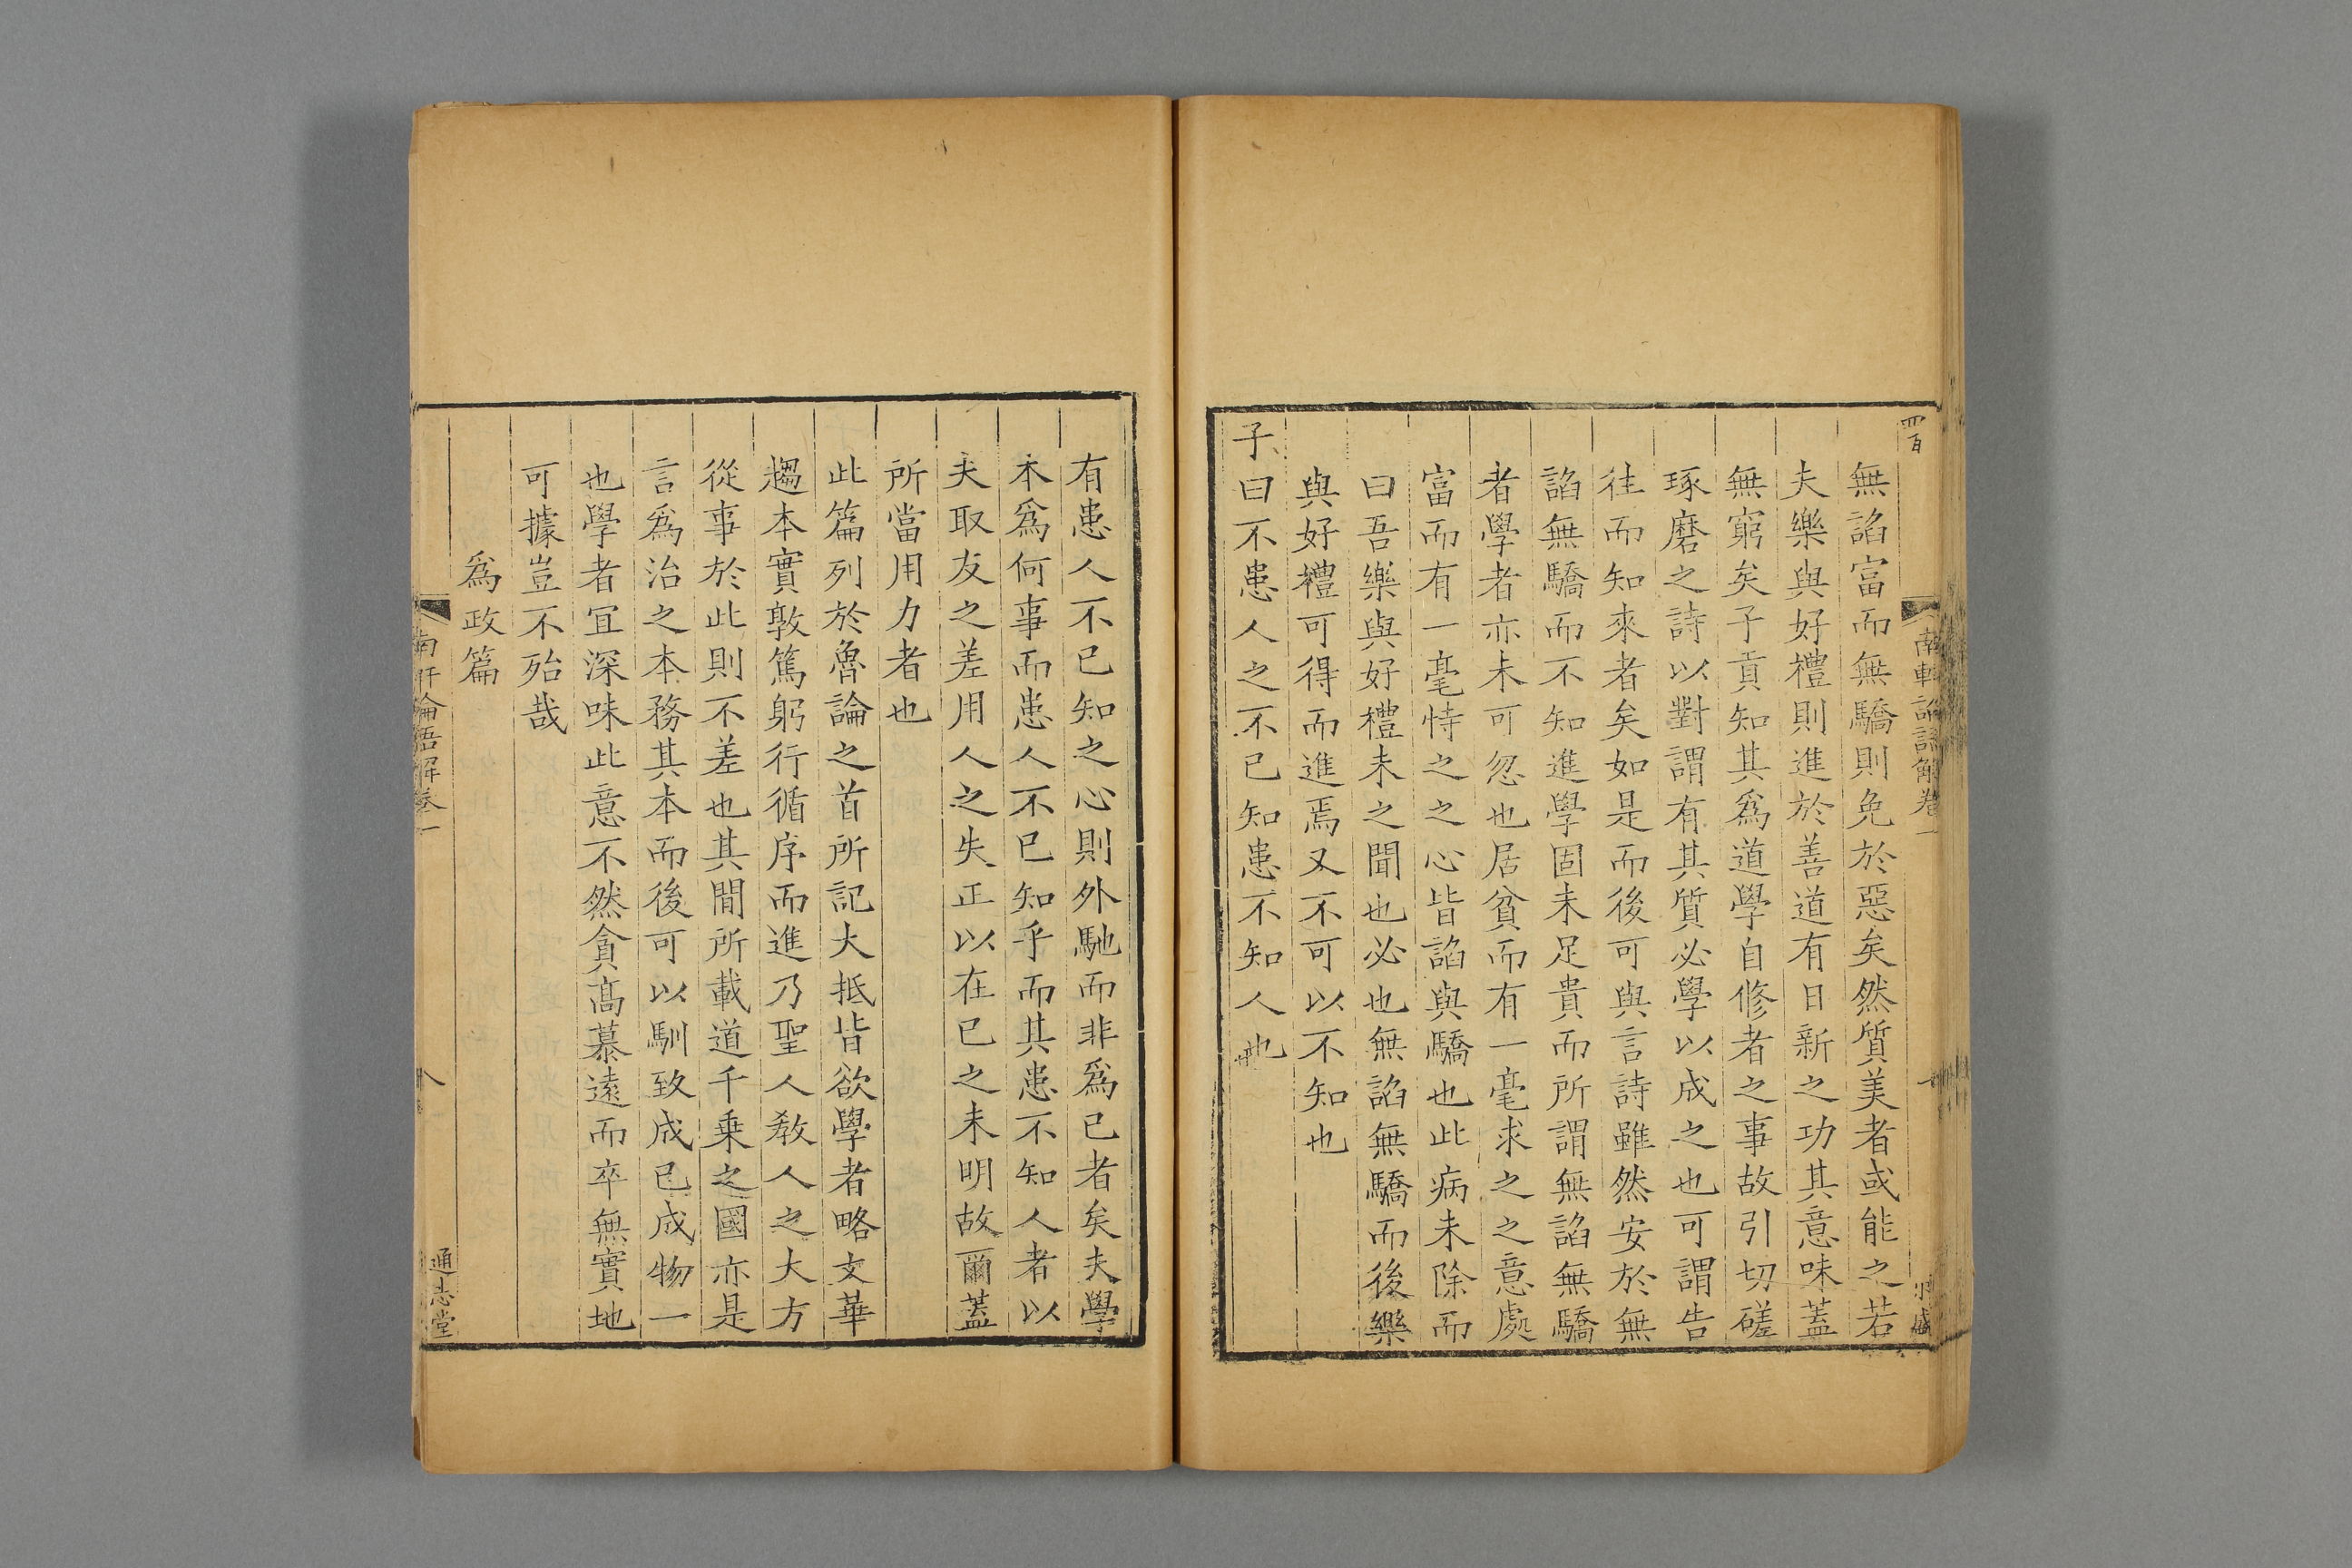 四百
南軒論語解卷一
無諂富而無驕則免於惡矣然質美者或能之若
夫樂與好禮則進於善道有日新之功其意味蓋
無窮矣子貢知其爲道學自修者之事故引切磋
琢磨之詩以對謂有其質必學以成之也可謂告
往而知來者矣如是而後可與言詩雖然安於無
諂無驕而不知進學固未足貴而所謂無諂無驕
者學者亦未可忽也居貧而有一毫求之之意處
富而有一毫恃之之心皆諂與驕也此病未除而
曰吾樂與好禮未之聞也必也無諂無驕而後樂
與好禮可得而進焉又不可以不知也
子曰不患人之不已知患不知人也
有患人不已知之心則外馳而非爲己者矣夫學
本爲何事而患人不已知乎而其患不知人者以
夫取友之差用人之失正以在已之未明故爾蓋
所當用力者也
此篇列於魯論之首所記大抵皆欲學者略文華
趨本實敦篤躬行循序而進乃聖人教人之大方
從事於此則不差也其間所載道千乗之國亦是
言爲治之本務其本而後可以馴致成已成物一
也學者宜深味此意不然貪高慕遠而卒無實地
可據豈不殆哉
爲政篇
南軒論語解卷一
八
通志堂